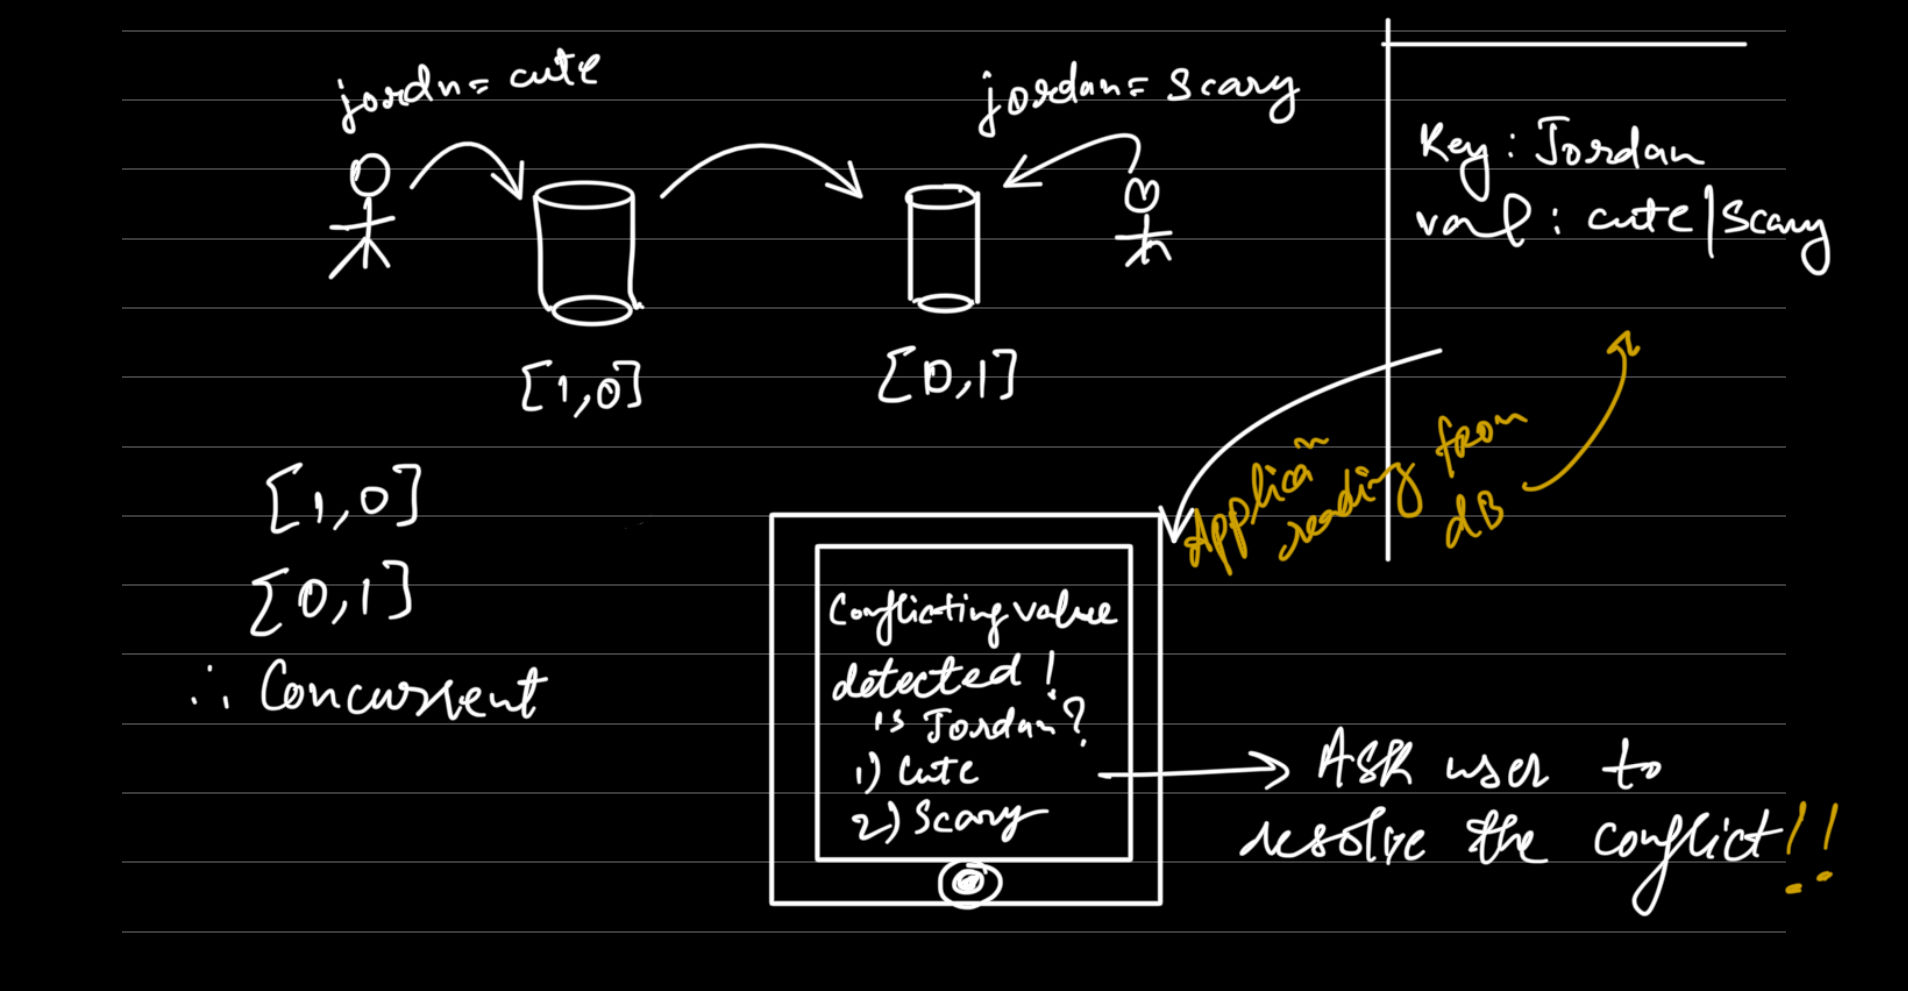 jordn = cute
jordan = Scary
Key : Jordan
val : cute | Scary
[1,0]
[0,1]
Applican
reading from
dB
[1,0]
[0,1]
∴ Concurrent
Conflicting value
detected !
is Jordan?
1) Cute
2) Scary
Ask user to
resolve the conflict!!